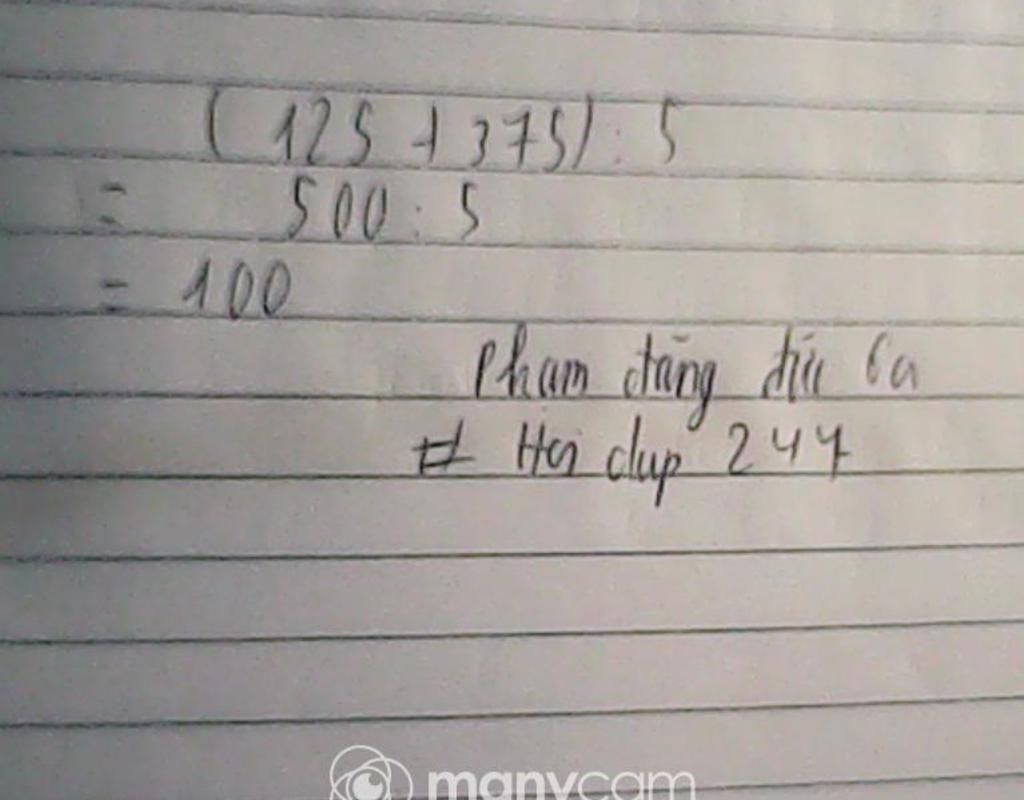 (125 + 375) : 5
= 500 : 5
= 100
Phạm đăng đức 6a
# Hoi dap 247
manycam